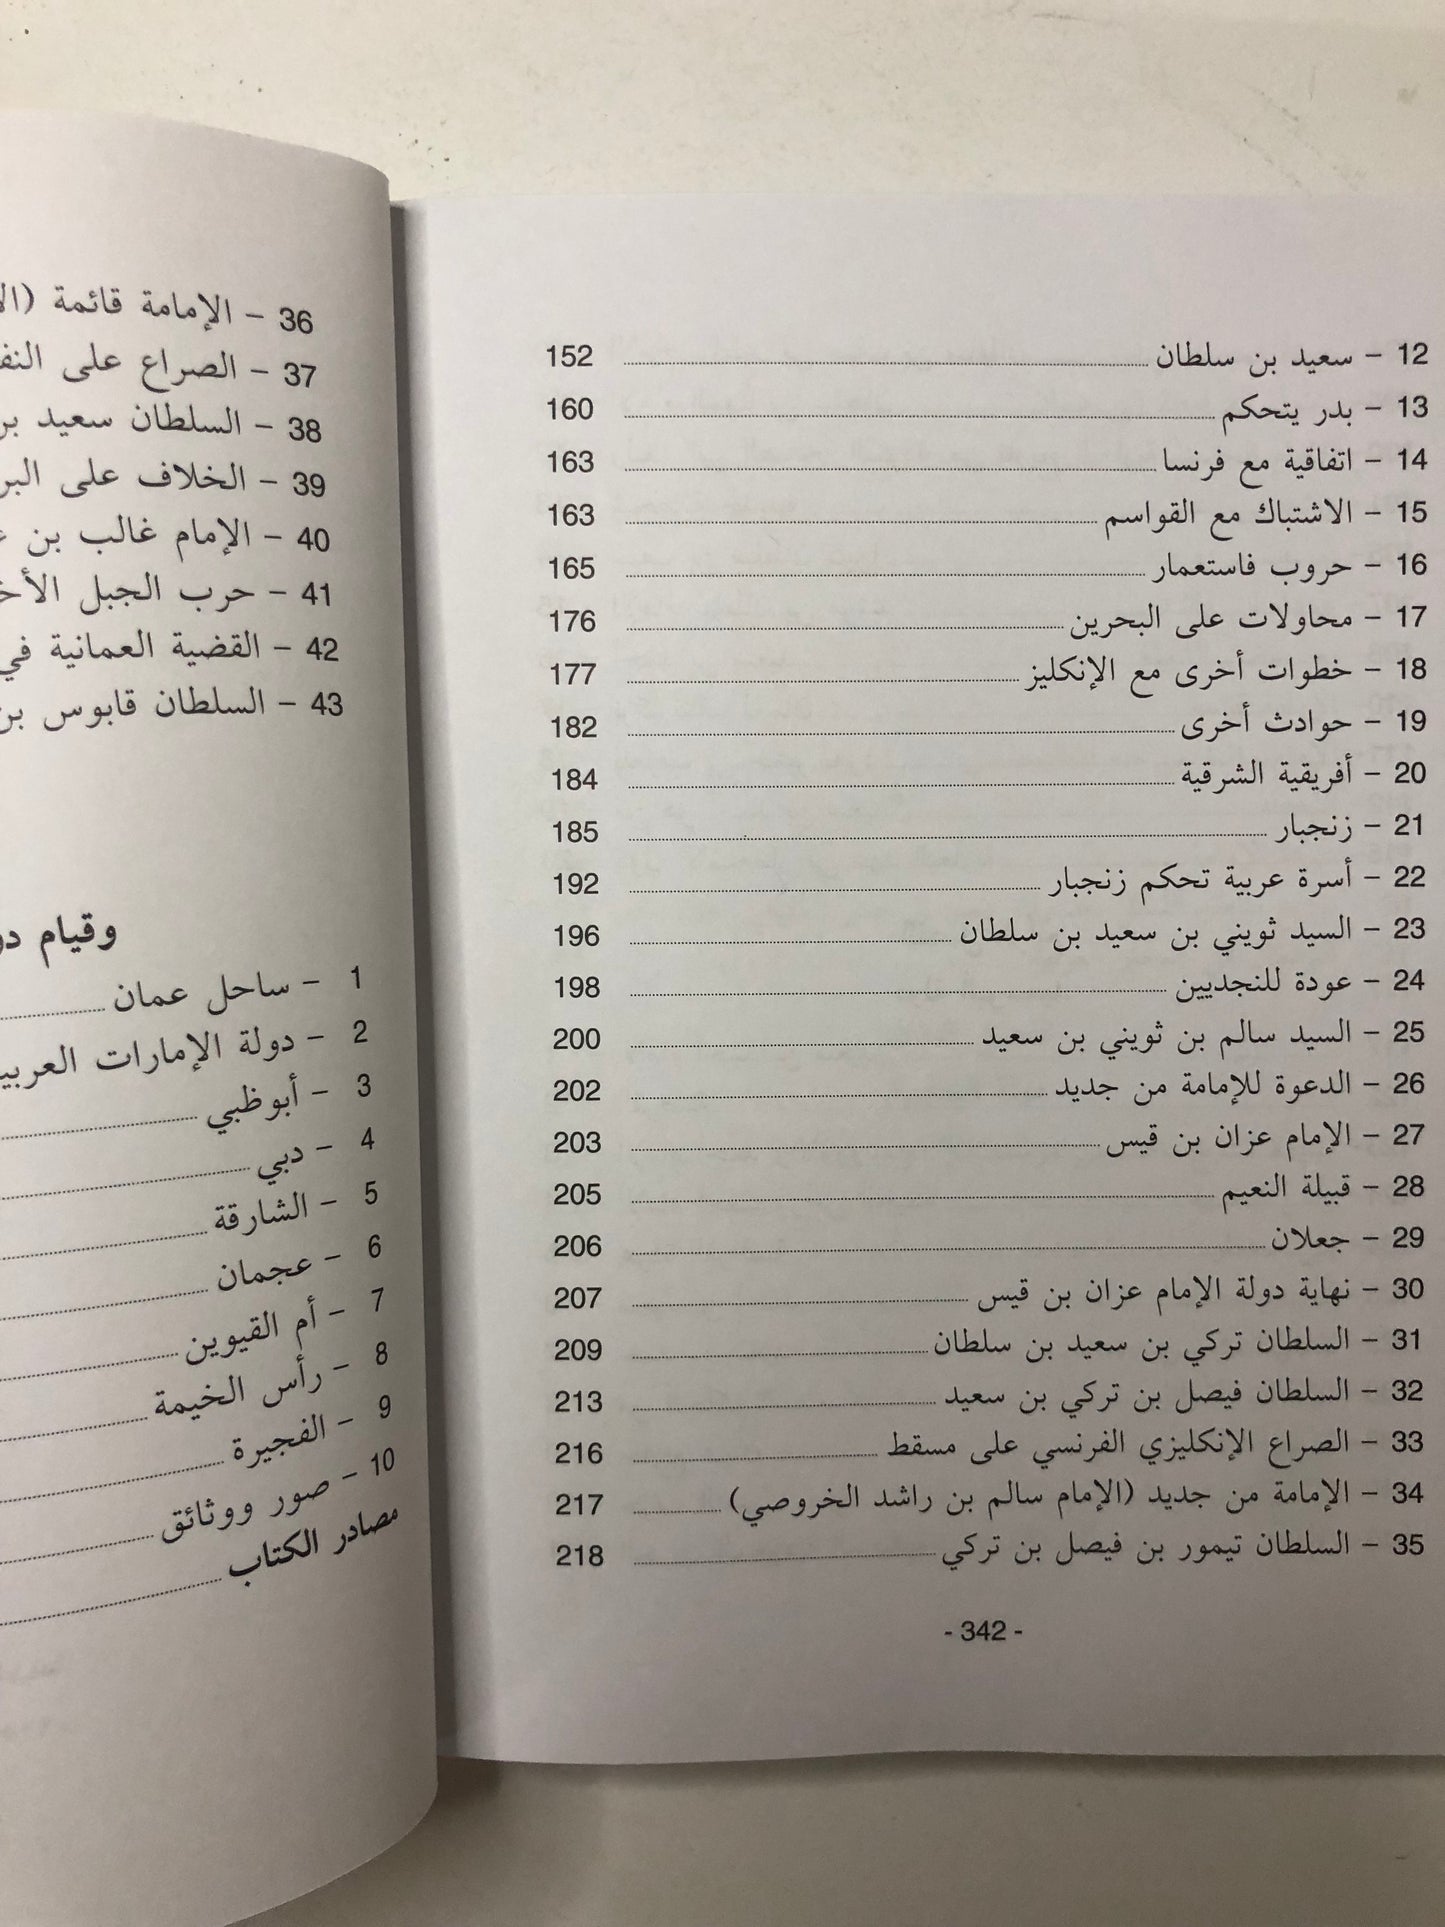 12 – سعيد بن سلطان ........ 152
13 – بدر يتحكم ........ 160
14 – اتفاقية مع فرنسا ........ 163
15 – الاشتباك مع القواسم ........ 163
16 – حروب فاستعمار ........ 165
17 – محاولات على البحرين ........ 176
18 – خطوات أخرى مع الإنكليز ........ 177
19 – حوادث أخرى ........ 182
20 – أفريقية الشرقية ........ 184
21 – زنجبار ........ 185
22 – أسرة عربية تحكم زنجبار ........ 192
23 – السيد ثويني بن سعيد بن سلطان ........ 196
24 – عودة للنجديين ........ 198
25 – السيد سالم بن ثويني بن سعيد ........ 200
26 – الدعوة للإمامة من جديد ........ 202
27 – الإمام عزان بن قيس ........ 203
28 – قبيلة النعيم ........ 205
29 – جعلان ........ 206
30 – نهاية دولة الإمام عزان بن قيس ........ 207
31 – السلطان تركي بن سعيد بن سلطان ........ 209
32 – السلطان فيصل بن تركي بن سعيد ........ 213
33 – الصراع الإنكليزي الفرنسي على مسقط ........ 216
34 – الإمامة من جديد (الإمام سالم بن راشد الخروصي) ........ 217
35 – السلطان تيمور بن فيصل بن تركي ........ 218
- 342 -
36 – الإمامة قائمة
37 – الصراع على
38 – السلطان سعيد بن
39 – الخلاف على
40 – الإمام غالب بن
41 – حرب الجبل
42 – القضية العمانية في
43 – السلطان قابوس بن
وقيام
1 – ساحل عمان ........
2 – دولة الإمارات
3 – أبوظبي ........
4 – دبي ........
5 – الشارقة ........
6 – عجمان ........
7 – أم القيوين ........
8 – رأس الخيمة ........
9 – الفجيرة ........
10 – صور ووثائق ........
مصادر الكتاب ........